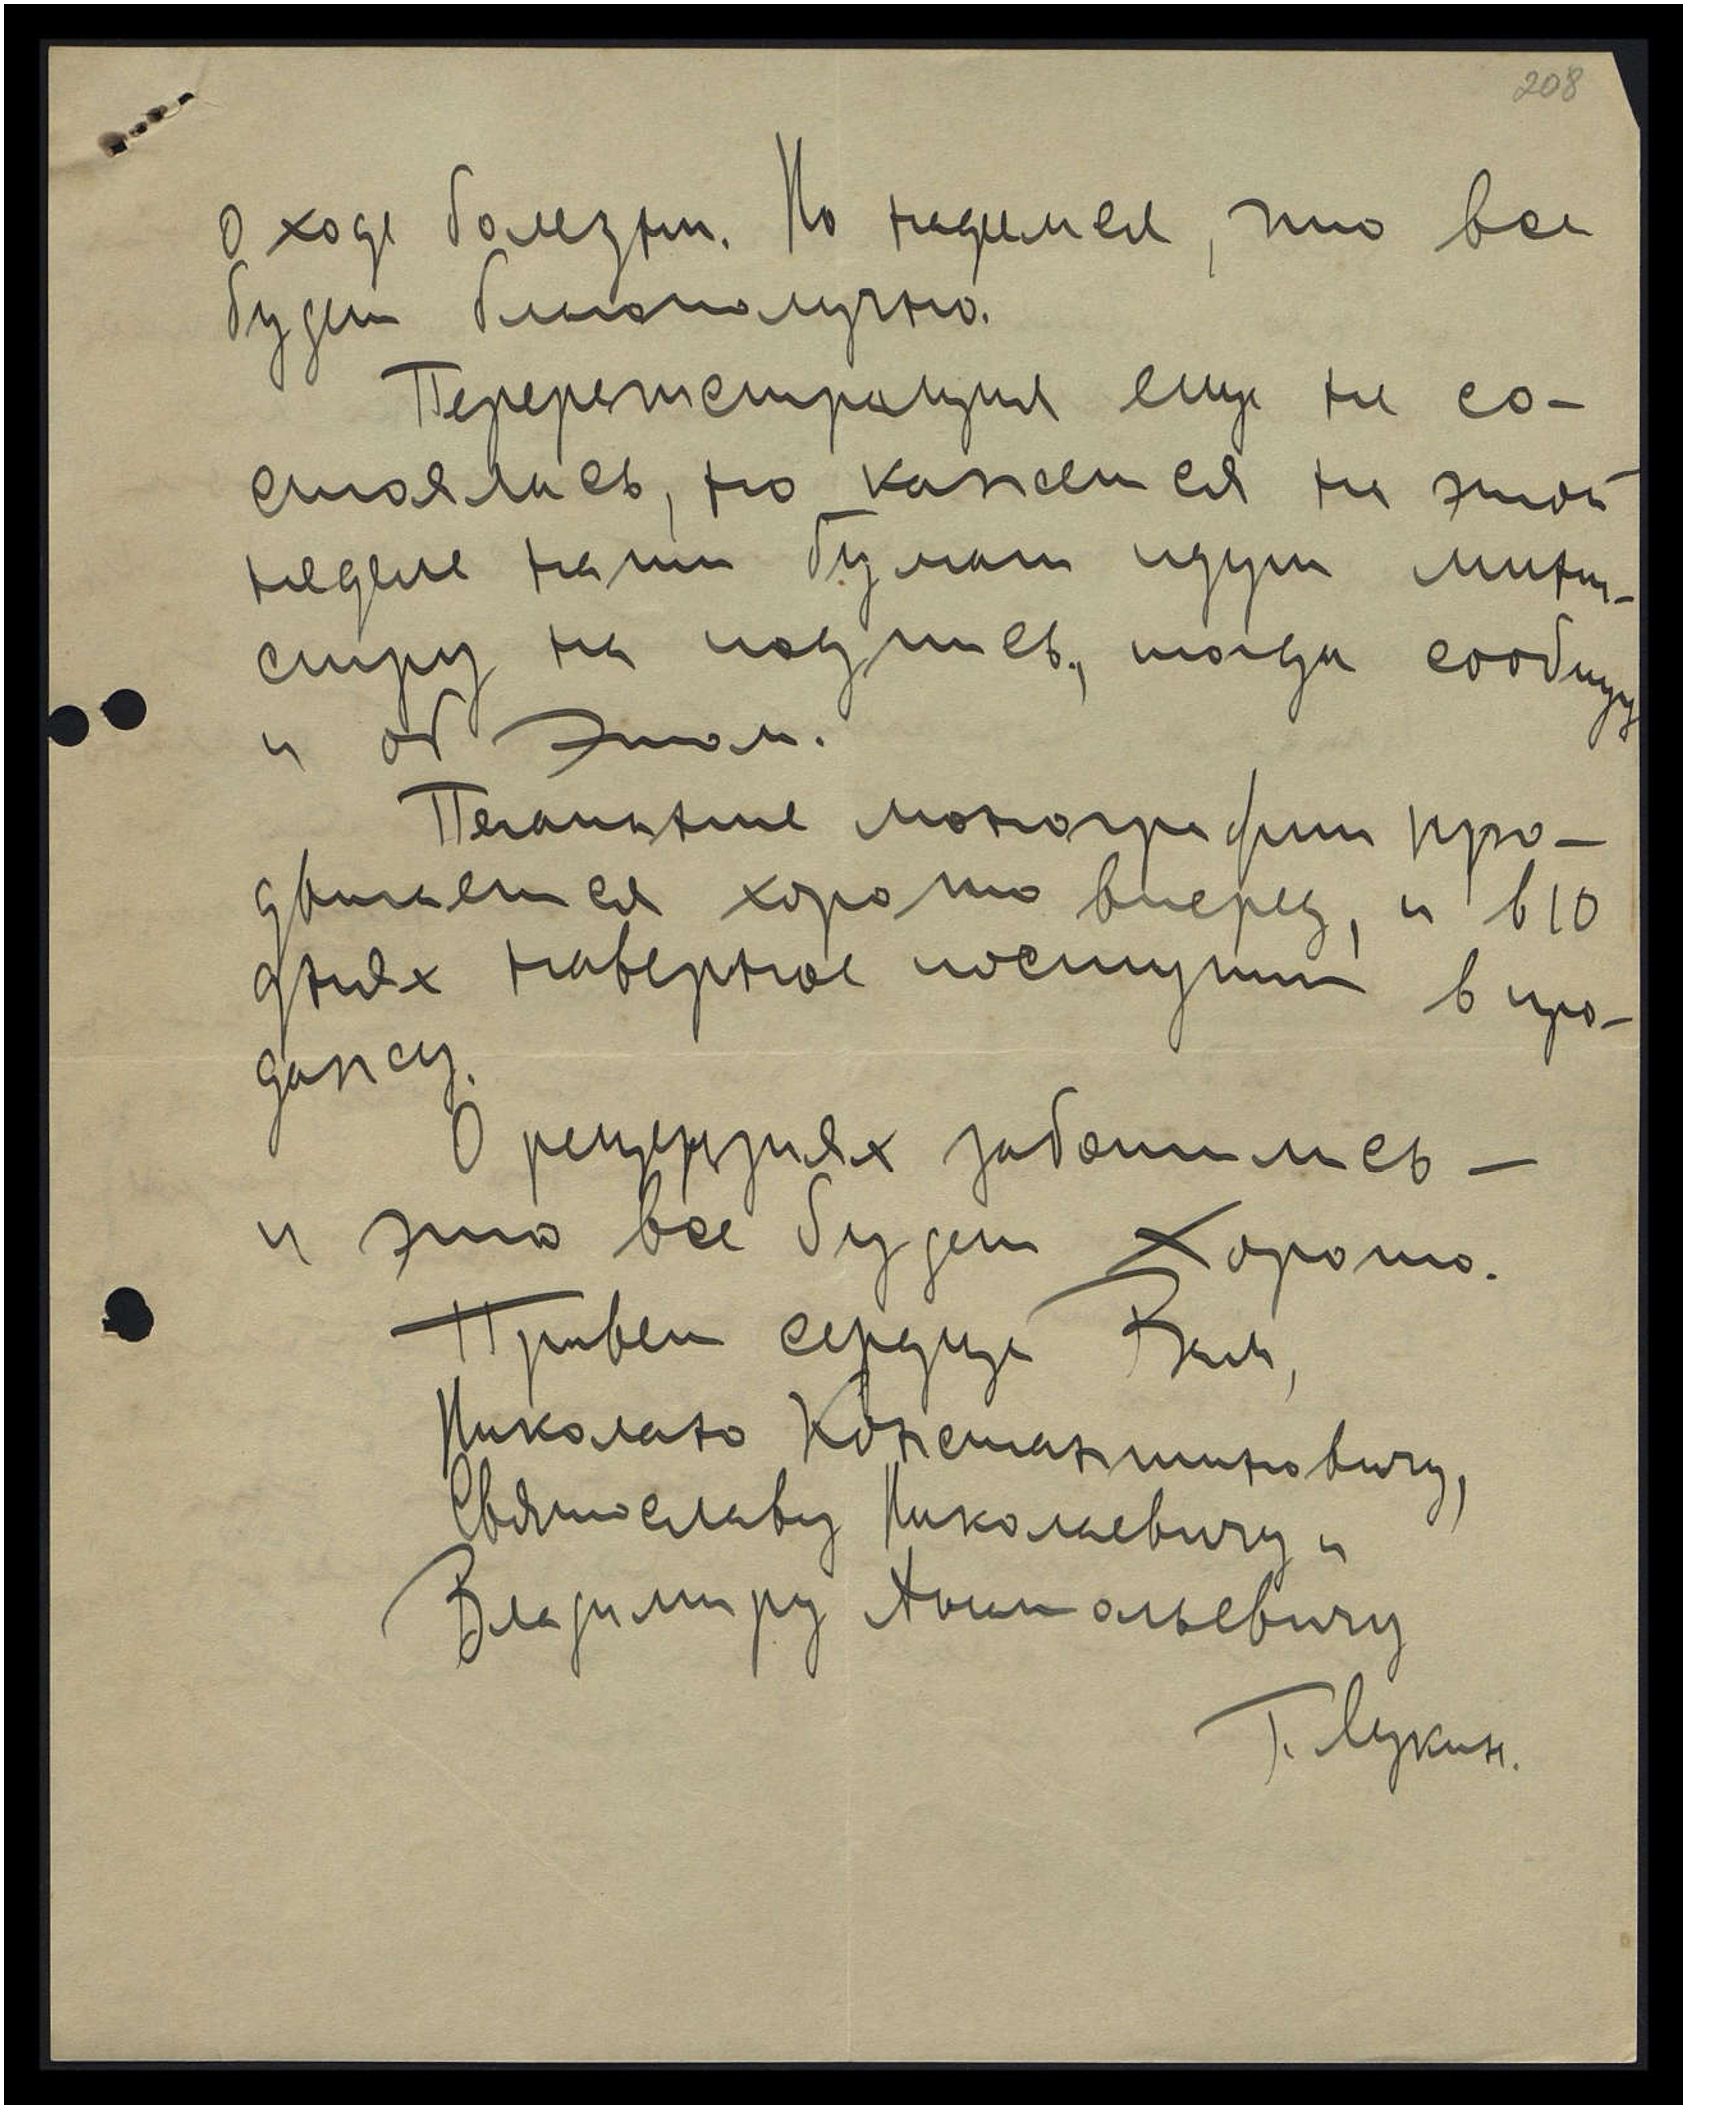 208
о ходе болезни. Но надеемся, что все
будет благополучно.
Перерегистрация еще не со-
стоялась, но кажется на этой
неделе наши бумаги идут мини-
стру на подпись, тогда сообщу
и об этом.
Печатание монографии про-
двигается хорошо вперед, и в 10
днях наверное поступит в про-
дажу.
О рецензиях заботимись —
и это все будет хорошо.
Привет сердца Вам,
Николаю Константиновичу,
Святославу Николаевичу и
Владимиру Анатольевичу
Г. Лукин.